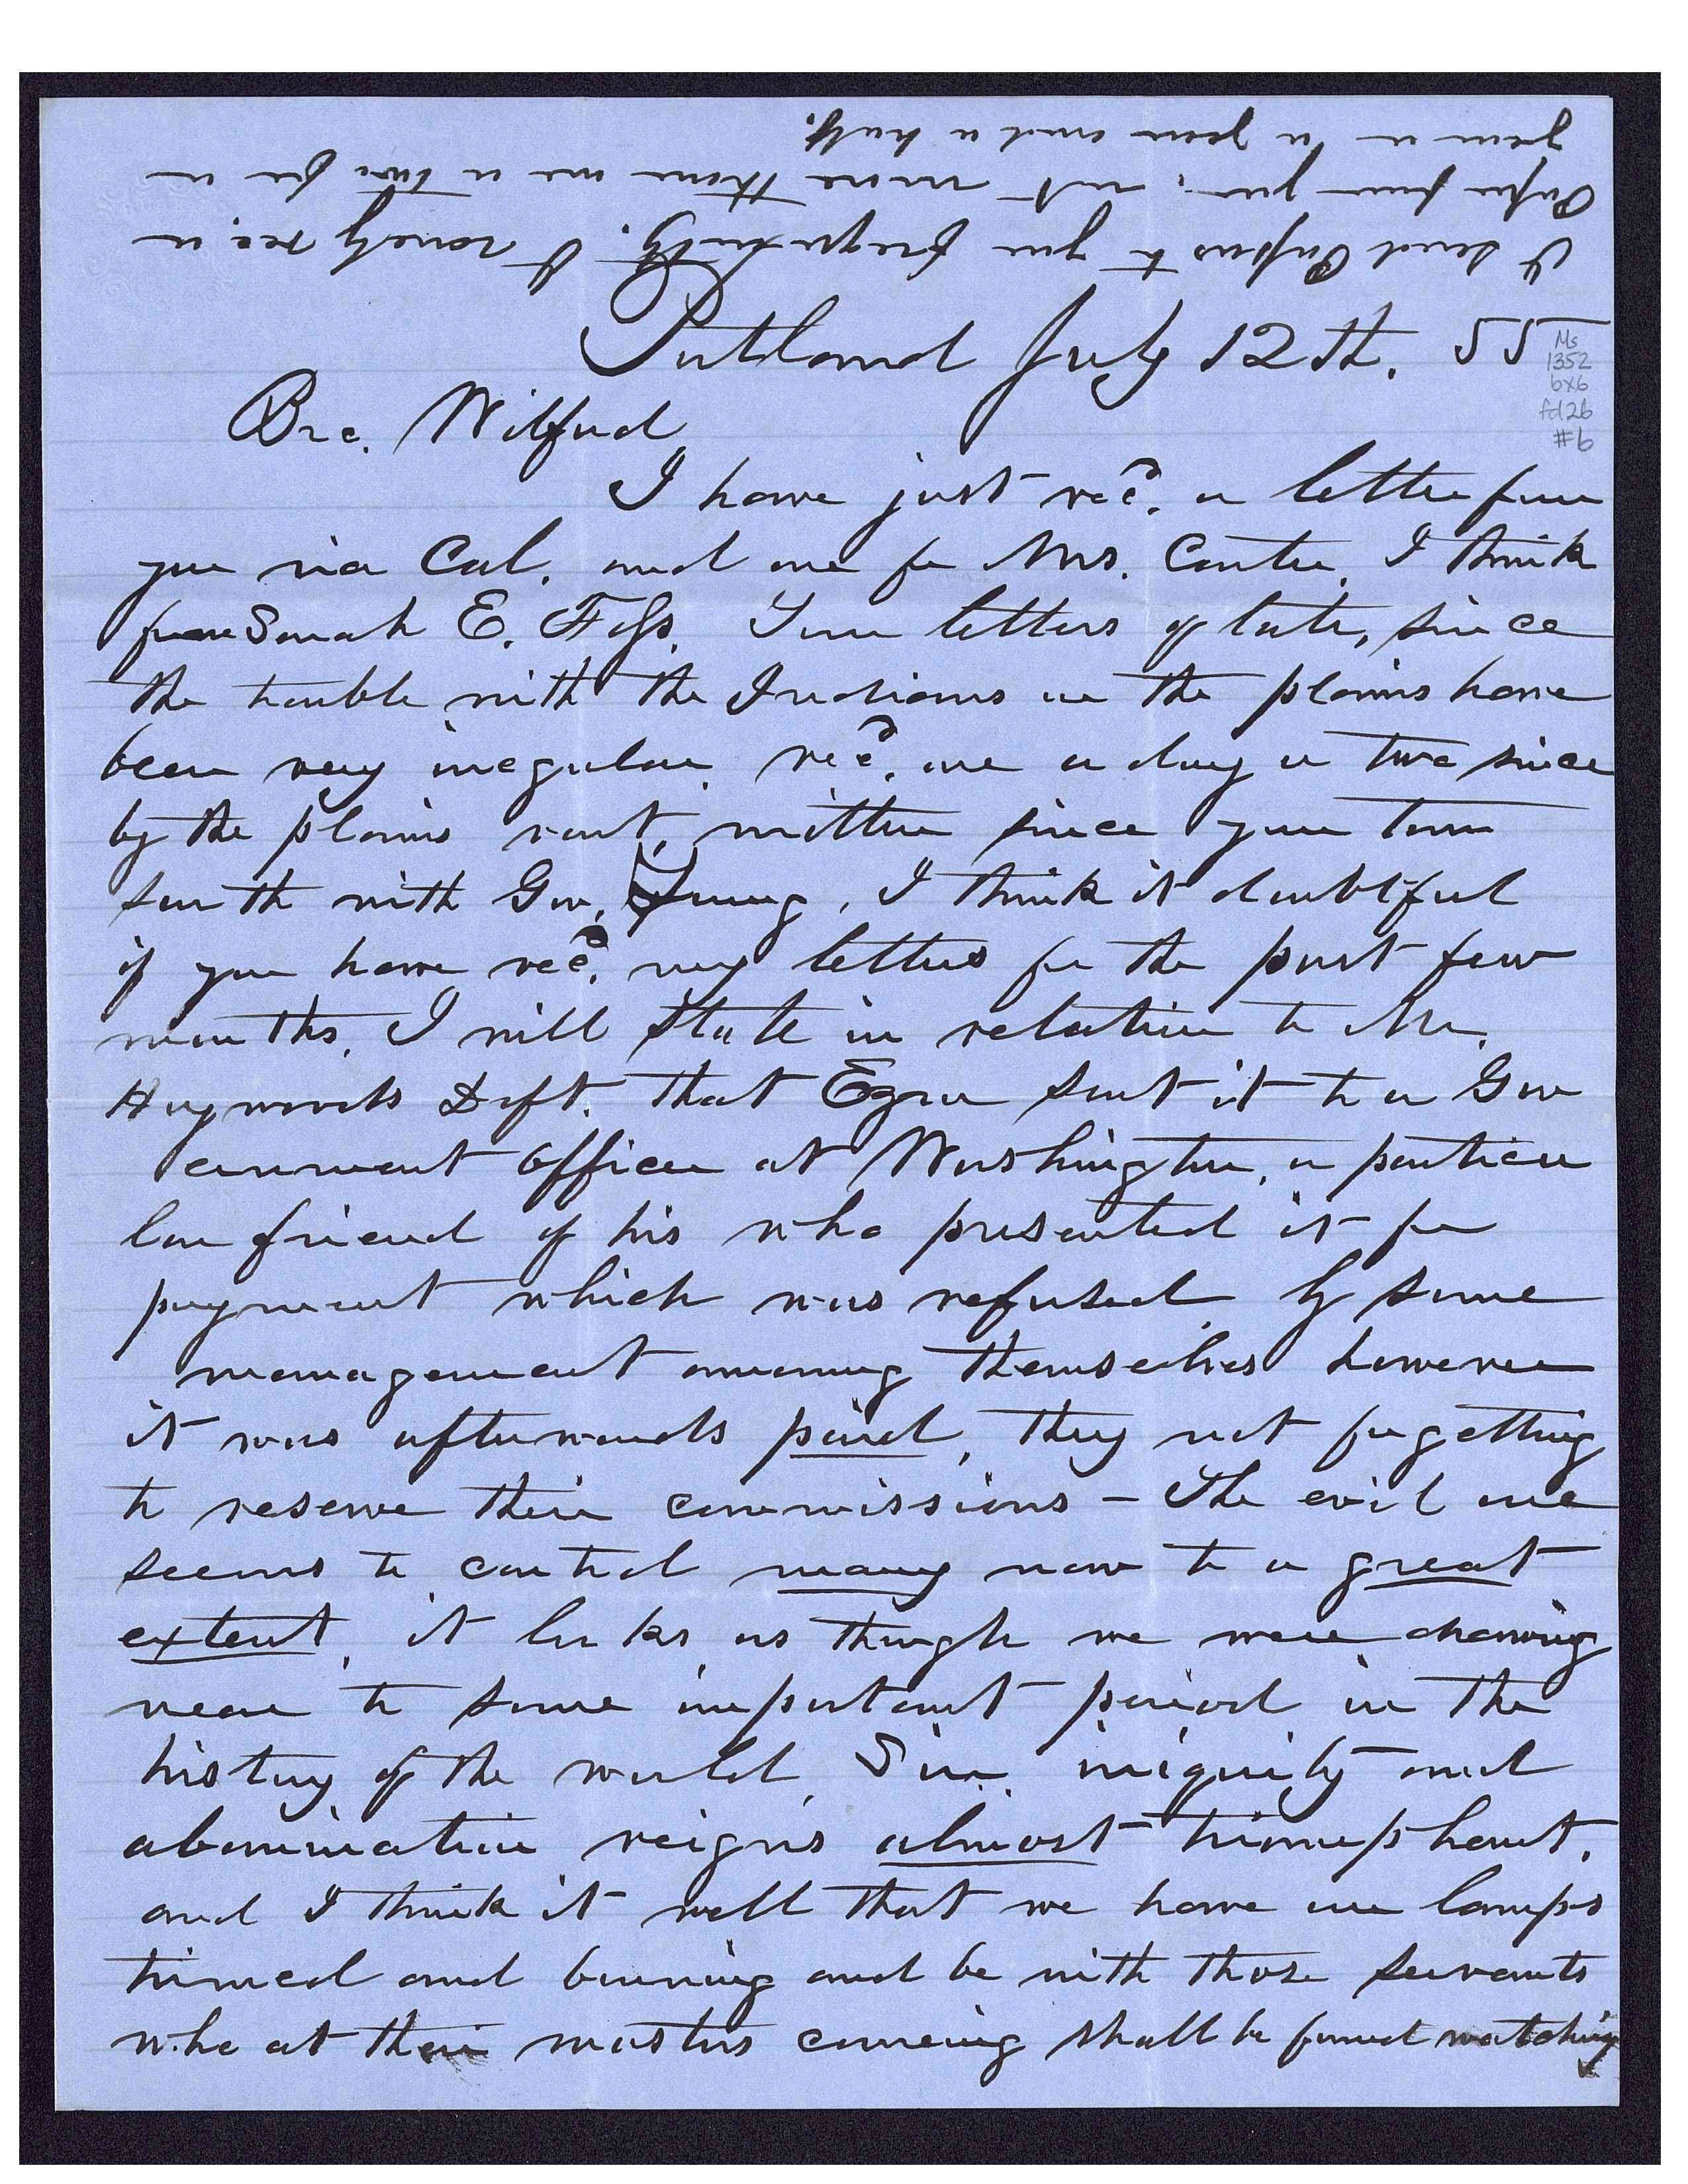 I send Papers to you frequently. I rarely rec. a
Paper from you, not more than one or two for a
year or a year and a half.
Portland July 12th. 55
Ms
1352
bx6
fd26
#6
Bro. Wilford
I have just recd. a letter from
you via Cal. and one for Mrs. Carter, I think
from Sarah E. Foss. Your letters of late, since
the trouble with the Indians on the plains have
been very iregular. recd. one a day or two since
by the plains rout, written since your tour
South with Gov. Young, I think it doubtful
if you have recd. my letters for the past few
months. I will State in relation to Mr.
Haywards Dft. that Ezra sent it to a Gov
ernment officer at Washington, a particu
lar friend of his who presented it for
payment which was refused. by some
management amoung themselves however
it was afterwards paid, they not forgetting
to reserve their commissions - The evil one
seems to control many now to a great
extent, it looks as though we were drawing
near to some important period in the
history of the world, Sin, iniquity and
abomination reigns almost triumphant,
and I think it well that we have our lamps
trimed and burning and be with those servants
who at their masters comeing shall be found watching